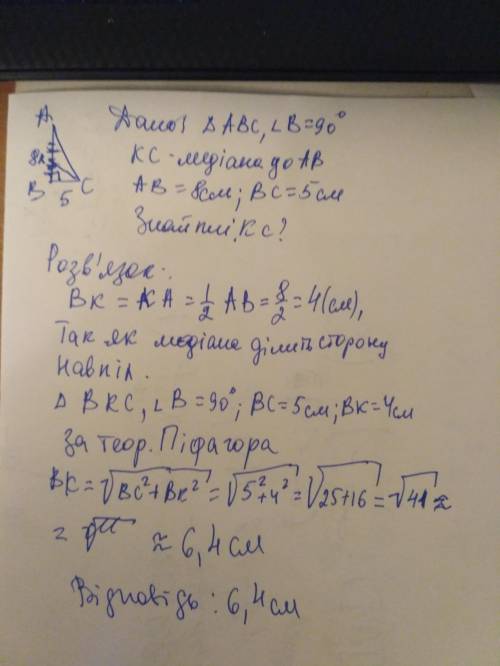 A
8
B
5
C
Дано: Δ ABC, ∠B=90°
KC - медіана до AB
AB = 8см; BC = 5см
Знайти: KC?
Розв'язок:
BK = KA = 1/2 AB = 8/2 = 4(см),
Так як медіана ділить сторону
навпіл.
Δ BKC, ∠B=90°; BC=5см; BK=4см
За теор. Піфагора
BK = √BC²+BK² = √5²+4² = √25+16 = √41 ≈
≈ 6,4 см
Відповідь: 6,4 см